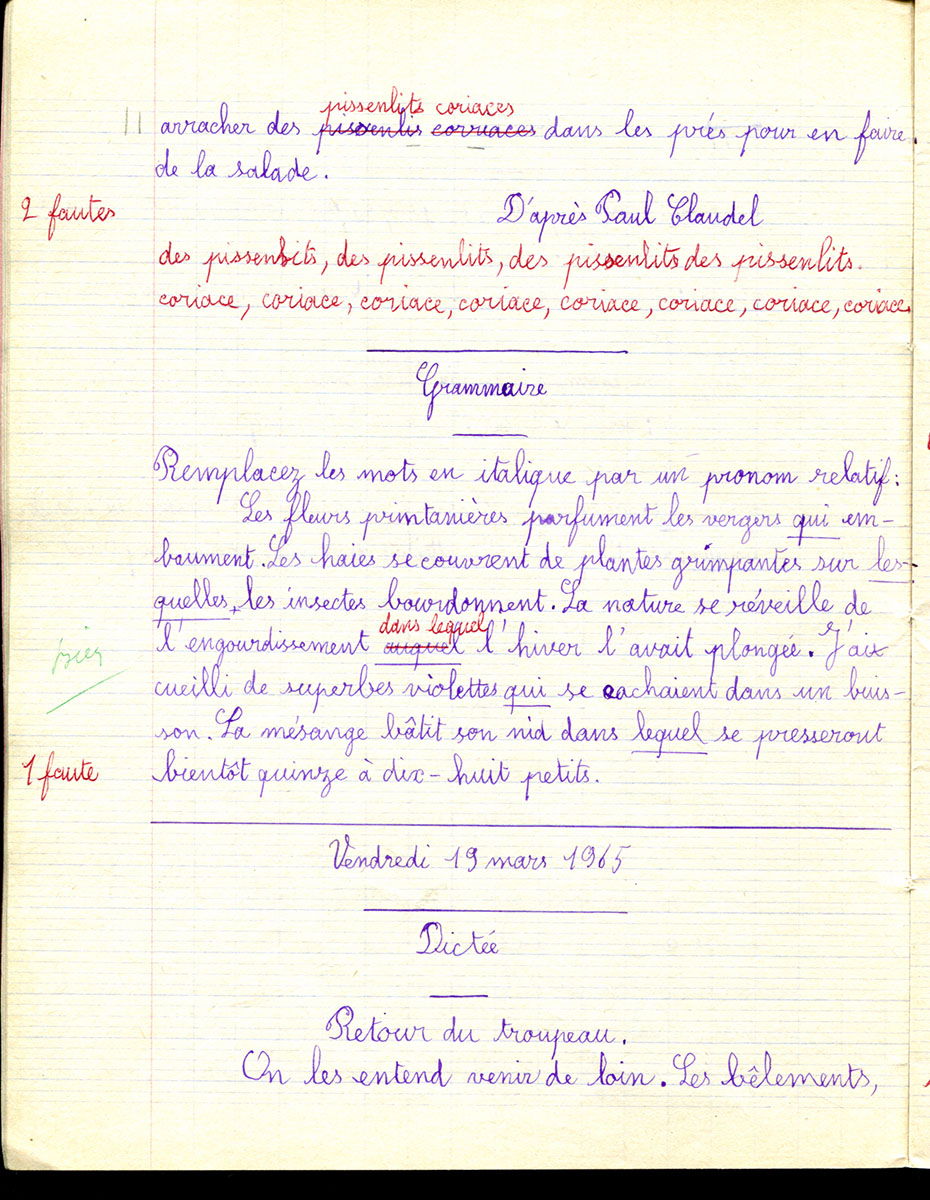 pissenlits coriaces
arracher des pissenlis corriaces dans les prés pour en faire
de la salade.
2 fautes
D'après Paul Claudel
des pissenlits, des pissenlits, des pissenlits des pissenlits.
coriace, coriace, coriace, coriace, coriace, coriace, coriace, coriace
Grammaire
Remplacez les mots en italique par un pronom relatif :
Les fleurs printanières parfument les vergers qui em-
baument. Les haies se couvrent de plantes grimpantes sur les-
quelles, les insectes bourdonnent. La nature se réveille de
dans lequel
l'engourdissement auquel l'hiver l'avait plongée. J'ai
bien
cueilli de superbes violettes qui se cachaient dans un buis-
son. La mésange bâtit son nid dans lequel se presseront
1 faute
bientôt quinze à dix-huit petits.
Vendredi 19 mars 1965
Dictée
Retour du troupeau.
On les entend venir de loin. Les bêlements,